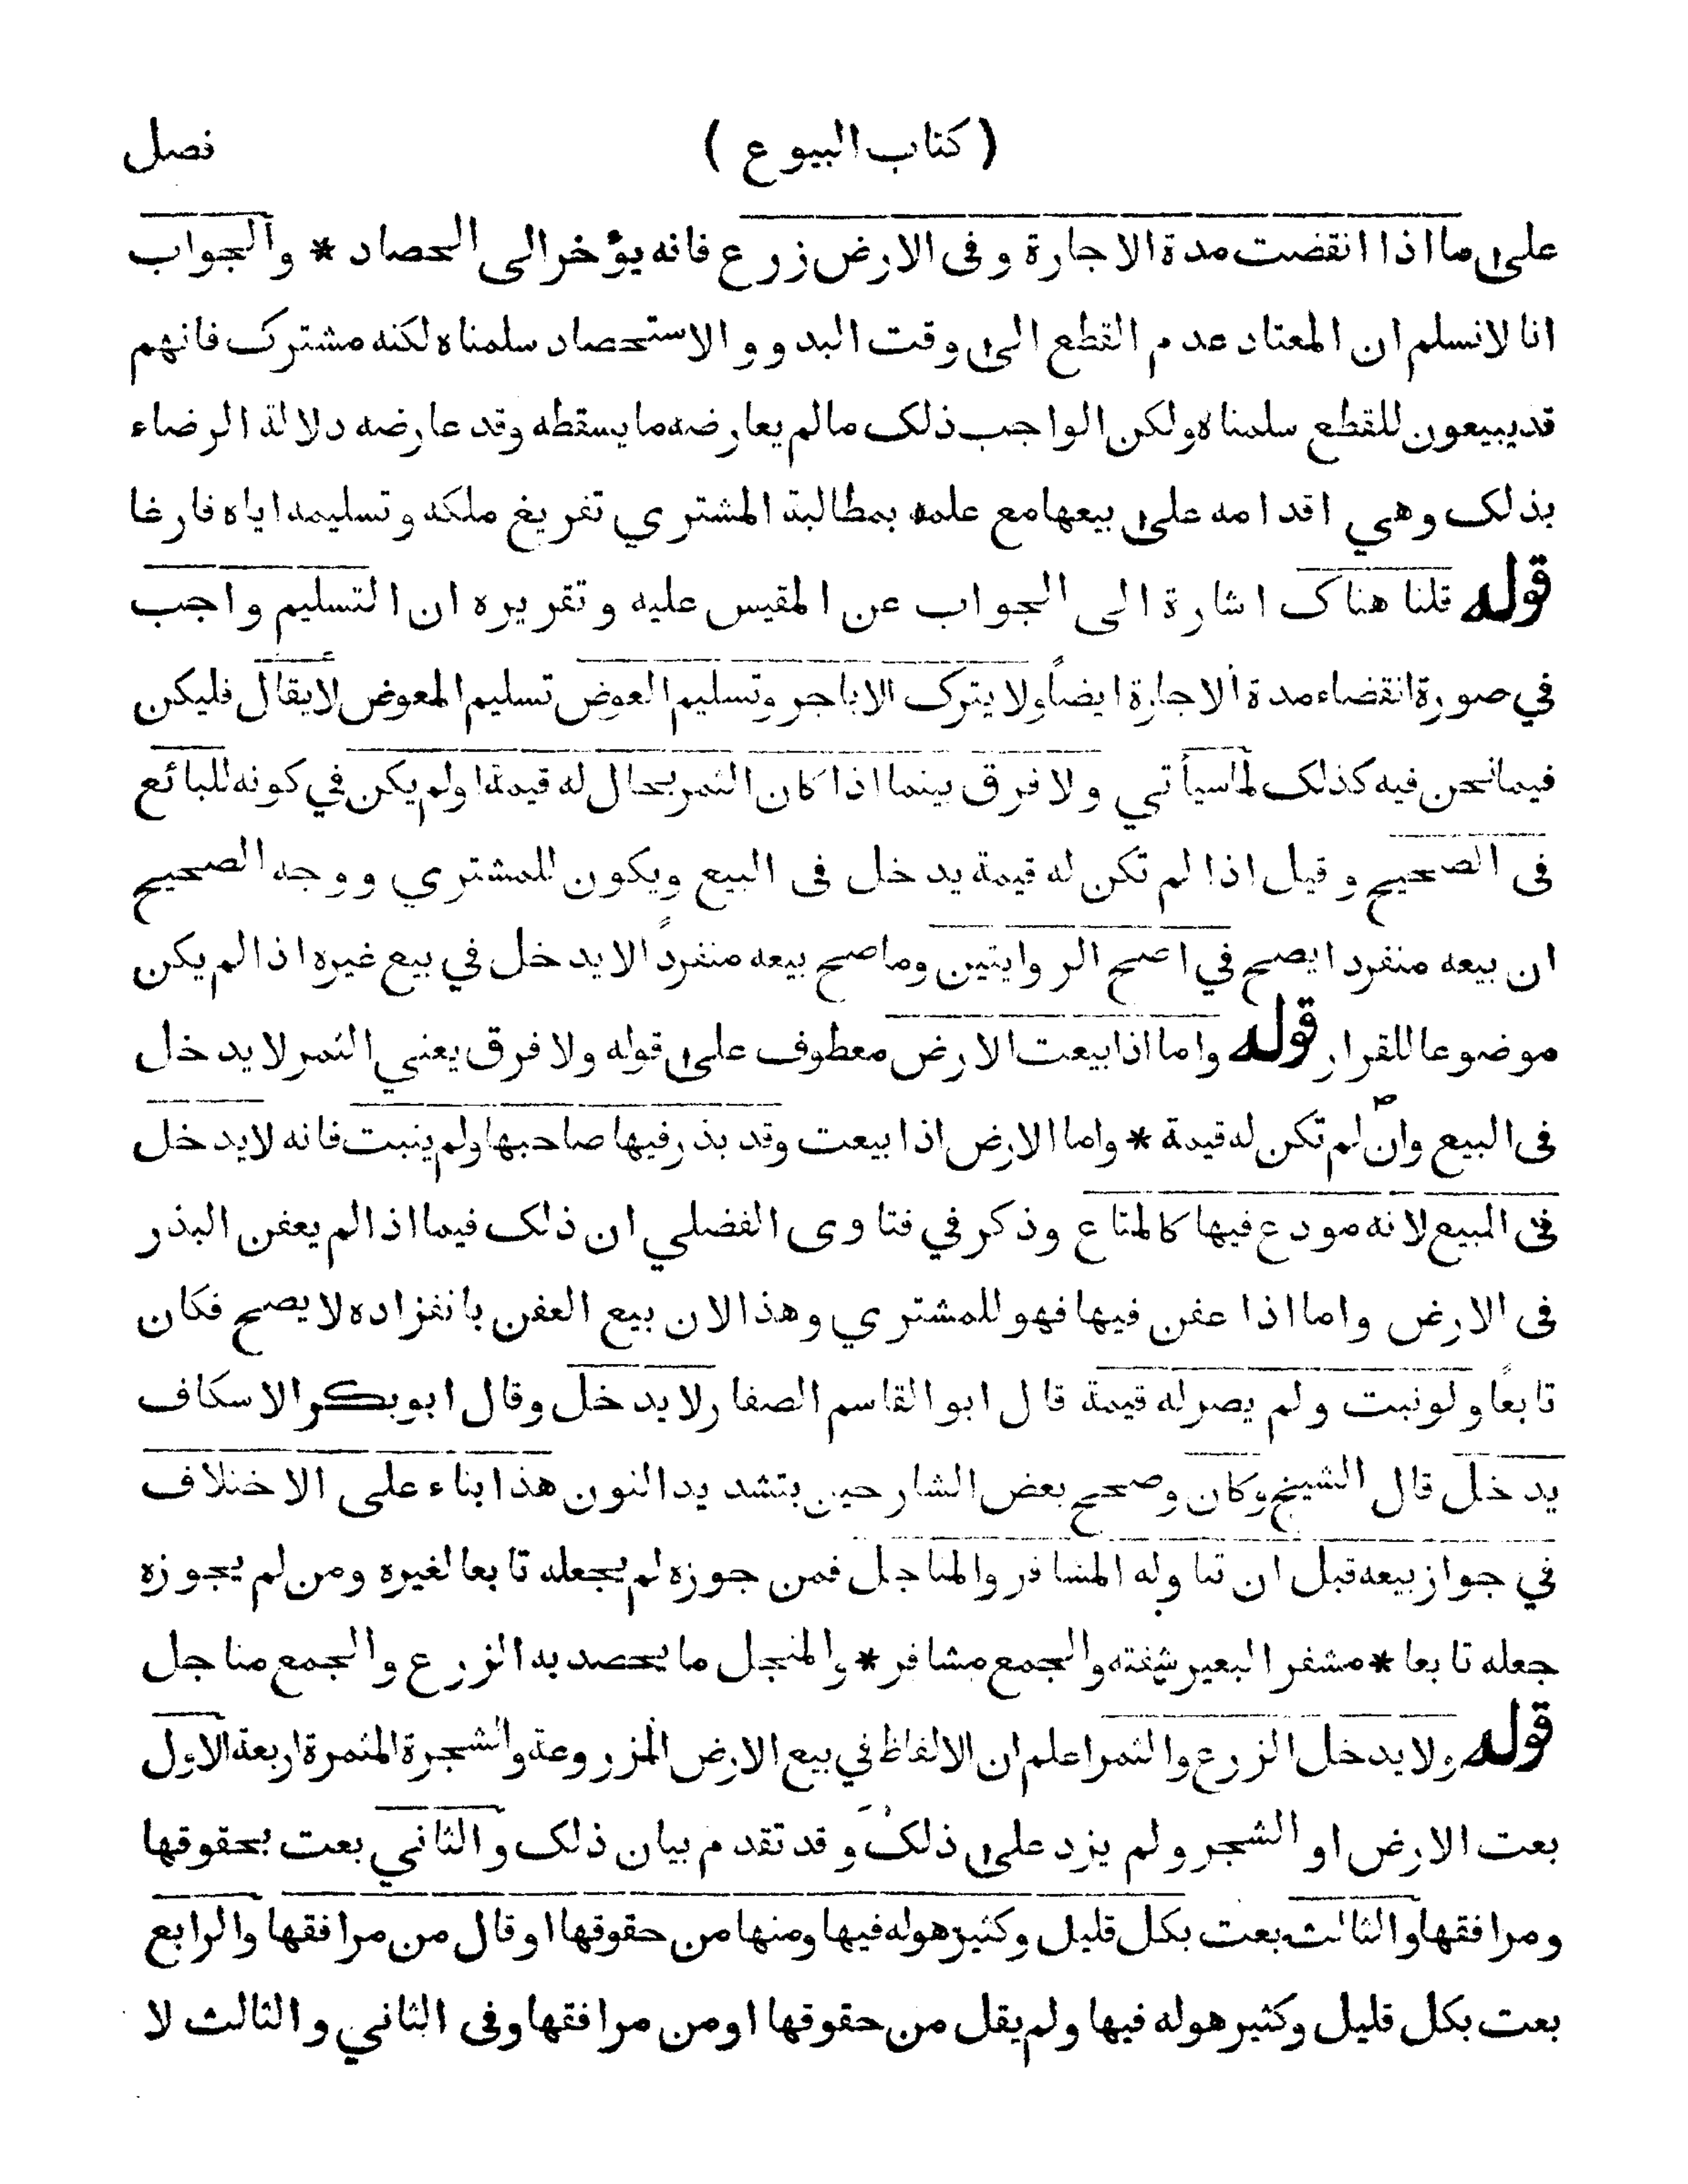 ( كتاب البيوع ) فصل
على ما اذا انقضت مدة الاجارة وفى الارض زرع فانه يؤخر الى الحصاد * والجواب
انا لا نسلم ان المعتاد عدم القطع الى وقت البدو والاستحصاد سلمناه لكنه مشترك فانهم
قد يبيعون للقطع سلمناه ولكن الواجب ذلك مالم يعارضه ما يسقطه وقد عارضه دلالة الرضاء
بذلك وهي اقدامه على بيعها مع علمه بمطالبة المشتري تفريغ ملكه وتسليمه اياه فارغا
قوله قلنا هناك اشارة الى الجواب عن المقيس عليه وتقريره ان التسليم واجب
في صورة انقضاء مدة الاجارة ايضاً ولا يترك الا باجر وتسليم العوض تسليم المعوض لا يقال فليكن
فيما نحن فيه كذلك لما سيأتي ولا فرق بينما اذا كان الثمر بحال له قيمة اولم يكن في كونه للبائع
فى الصحيح وقيل اذا لم تكن له قيمة يدخل فى البيع ويكون للمشتري ووجه الصحيح
ان بيعه منفردا يصح في اصح الروايتين وما صح بيعه منفرداً لا يدخل في بيع غيره اذا لم يكن
موضوعا للقرار قوله واما اذا بيعت الارض معطوف على قوله ولا فرق يعني الثمر لا يدخل
فى البيع وان لم تكن له قيمة * واما الارض اذا بيعت وقد بذر فيها صاحبها ولم ينبت فانه لا يدخل
فى المبيع لانه مودع فيها كالمتاع وذكر في فتاوى الفضلي ان ذلك فيما اذا لم يعفن البذر
فى الارض واما اذا عفن فيها فهو للمشتري وهذا لان بيع العفن بانفراده لا يصح فكان
تابعاً ولو نبت ولم يصر له قيمة قال ابو القاسم الصفار لا يدخل وقال ابوبكر الاسكاف
يدخل قال الشيخ وكان وصحح بعض الشارحين بتشديد النون هذا بناء على الاختلاف
في جواز بيعه قبل ان تناوله المشافر والمناجل فمن جوزه لم يجعله تابعا لغيره ومن لم يجوزه
جعله تابعا * مشفر البعير شفته والجمع مشافر * والمنجل ما يحصد به الزرع والجمع مناجل
قوله ولا يدخل الزرع والثمر اعلم ان الالفاظ في بيع الارض المزروعة والشجرة المثمرة اربعة الاول
بعت الارض او الشجر ولم يزد على ذلك وقد تقدم بيان ذلك والثاني بعت بحقوقها
ومرافقها والثالث بعت بكل قليل وكثير هوله فيها ومنها من حقوقها اوقال من مرافقها والرابع
بعت بكل قليل وكثير هوله فيها ولم يقل من حقوقها اومن مرافقها وفى الثاني والثالث لا